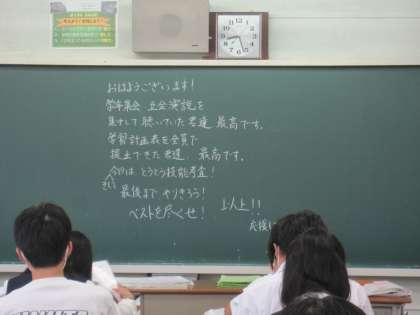 おはようございます!
学年集会 立会演説を
集中して聴いていた君達 最高です。
学習計画表を全員で
提出できた君達、最高です。
今日は とうとう技能考査!
最後まで やりきろう!
ベストを尽くせ!
以上!!